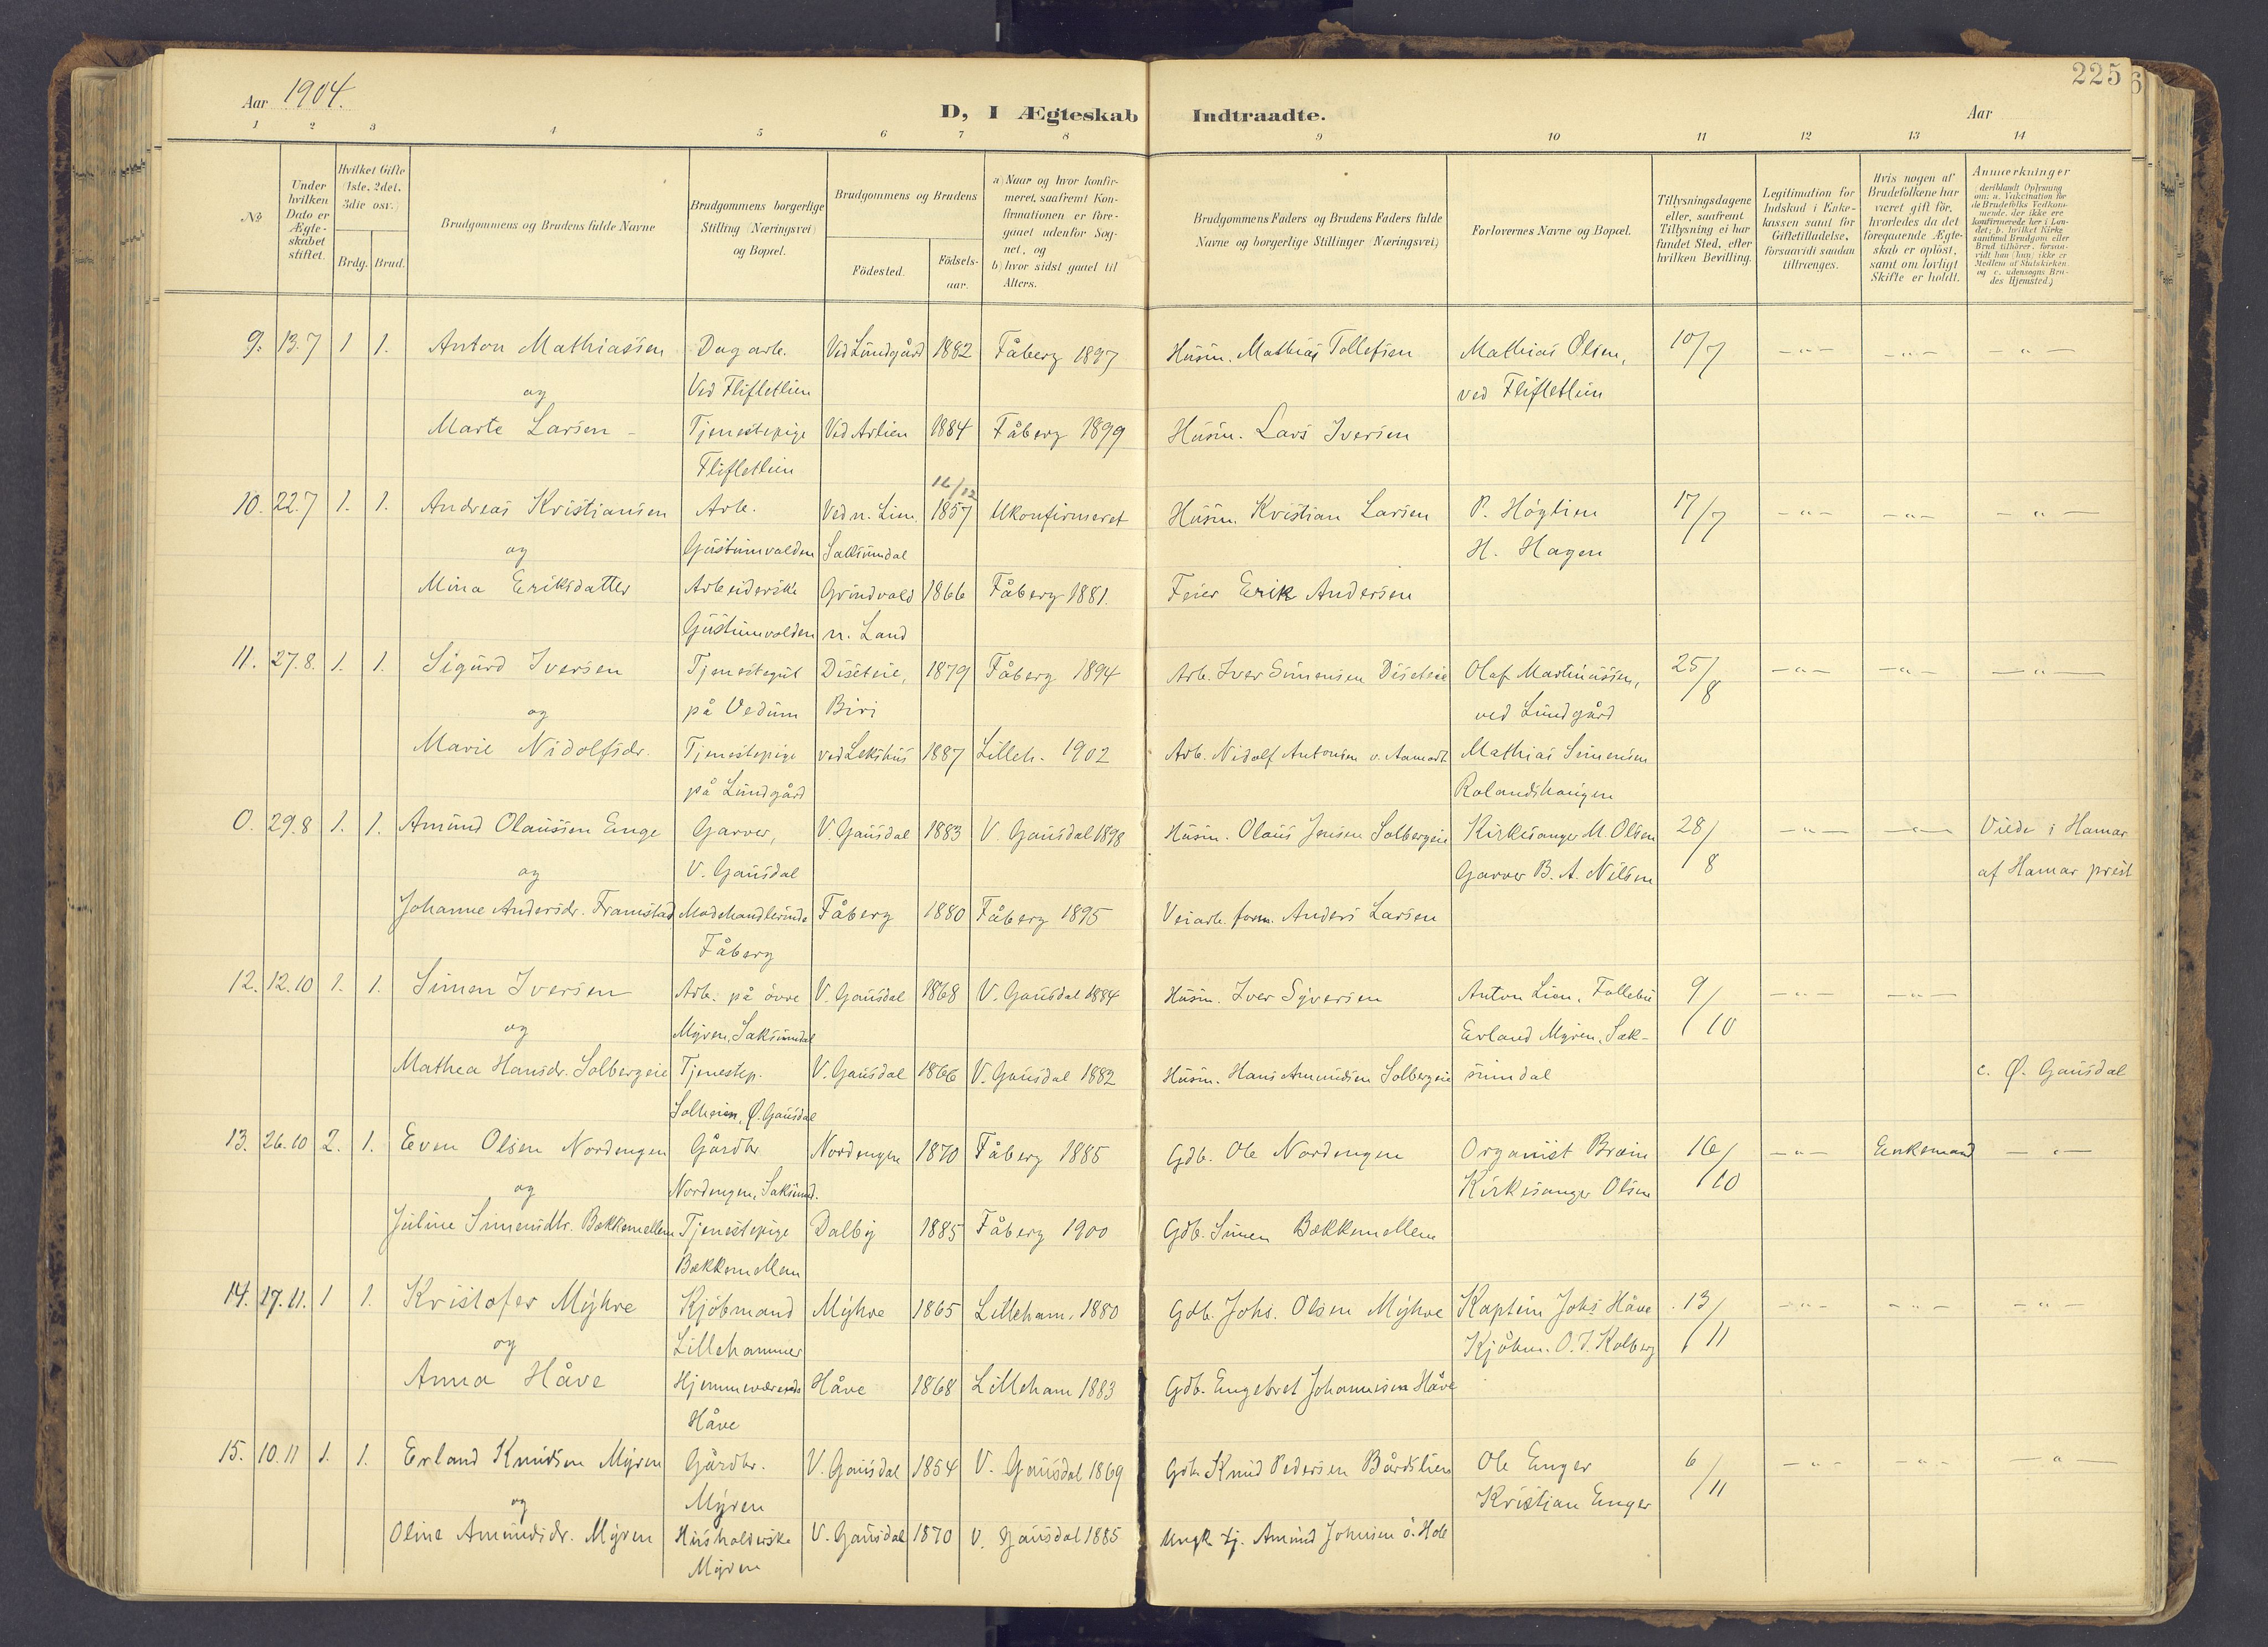 225
Aar 1904.
D, I Ægteskab Indtraadte.
Aar
1 2 3 4 5 6 7 8 9 10 11 12 13 14
No
Under hvilken Dato er Ægteskabet stiftet.
Hvilket Gifte (1ste, 2det, 3die osv.)
Brdg. Brud.
Brudgommens og Brudens fulde Navne
Brudgommens borgerlige Stilling (Næringsvei) og Bopæl.
Brudgommens og Brudens
Födested.
Födsels-aar.
a) Naar og hvor konfirmeret, saafremt Konfirmationen er foregaaet udenfor Sognet, og
b) hvor sidst gaaet til Alters.
Brudgommens Faders og Brudens Faders fulde Navne og borgerlige Stillinger (Næringsvei)
Forlovernes Navne og Bopæl.
Tillysningsdagene eller, saafremt Tillysning ei har fundet Sted, efter hvilken Bevilling.
Legitimation for Indskud i Enkekassen samt for Giftetilladelse, forsaavidt saadan tiltrænges.
Hvis nogen af Brudefolkene har været gift för, hvorledes da det foregaaende Ægteskab er oplöst, samt om lovligt Skifte er holdt.
Anmærkninger
(deriblandt Oplysning om: a. Vakcination for de Brudefolks Vedkommende, der ikke ere konfirmerede her i Landet; b. hvilket Kirkesamfund Brudgom eller Brud tilhører, forsaavidt han (hun) ikke er Medlem af Statskirken, og c. udensogns Brudes Hjemsted.)
9. 13.7 1 1. Anton Mathiassen Dagarb. Ved Lundgård 1882 Fåberg 1897 Husm. Mathias Tollefsen Mathias Olsen, 10/7 -"- -"- "-
og Ved Flifletlien ved Flifletlien
Marte Larsen - Tjenestepige Ved Aslien 1884 Fåberg 1899 Husm. Lars Iversen
Flifletlien
16/12
10. 22.7 1. 1. Andreas Kristiansen Arb. Ved n. Lien 1857 Ukonfirmeret Husm. Kristian Larsen P. Höglien 17/7 -"- -"- -"-
og Gustumvolden Saksumdal H. Hagen
Mina Eriksdatter Arbeiderske Grindvold 1866 Fåberg 1881. Feier Erik Andersen
Gustumvolden n. Land
11. 27.8. 1. 1. Sigurd Iversen Tjenestegut Diseteie, 1879 Fåberg 1894 Arb. Iver Simensen Diseteie Olaf Martinussen, 25/8 -"- -"- -"-
og på Vedum Biri ved Lundgård
Marie Nidolfsdr. Tjenestepige ved Lekshus 1887 Lilleh. 1902 Arb. Nidolf Antonsen v. Aamodt Mathias Simensen
på Lundgård Rolandshaugen
0. 29.8 1. 1. Amund Olaussen Enge Garver, V. Gausdal 1883 V. Gausdal 1898 Husm. Olaus Jensen Solbergeie Kirkesanger M. Olsen 28/8 -"- -"- Viede i Hamar
og V. Gausdal Garver B. A. Nilsen af Hamar prest
Johanne Andersdr. Framstad Modehandlerinde Fåberg 1880 Fåberg 1895 Veiarb. form. Anders Larsen
Fåberg
12. 12.10 1. 1. Simen Iversen Arb. på övre V. Gausdal 1868 V. Gausdal 1884 Husm. Iver Syversen Anton Lien, Follebu 9/10 -"- -"-
og Myren, Saksumdal Erland Myren, Sak-
Mathea Hansdr. Solbergeie Tjenestep. V. Gausdal 1866 V. Gausdal 1882 Husm. Hans Amundsen Solbergeie sumdal c. Ø. Gausdal
Solheim, Ø. Gausdal
13. 26.10 2. 1. Even Olsen Nordengen Gårdbr. Nordengen 1870 Fåberg 1885 Gdb. Ole Nordengen Organist Bræin 16/10 -"- Enkemand -"-
og Nordengen, Saksumd. Kirkesanger Olsen
Juline Simensdtr. Bækkemellem Tjenestepige Dalby 1885 Fåberg 1900 Gdb. Simen Bækkemellem
Bækkemellem
14. 17.11. 1 1. Kristofer Myhre Kjöbmand Myhre 1865 Lilleham. 1880 Gdb. Johs. Olsen Myhre Kaptein Johs Håve 13/11 -"- -"- -"-
og Lillehammer Kjöbm. O. J. Kolberg
Anna Håve Hjemmeværende Håve 1868 Lilleham 1883 Gdb. Engebret Johannesen Håve
Håve
15. 10.11 1. 1. Erland Knudsen Myren Gårdbr. V. Gausdal 1854 V. Gausdal 1869 Gdb. Knud Pedersen Bårdslien Ole Enger 6/11 -"- -"- -"-
og Myren Kristian Enger
Oline Amundsdr. Myren Husholderske V. Gausdal 1870 V. Gausdal 1885 Ungk. tj. Amund Johnsen ö. Hole
Myren